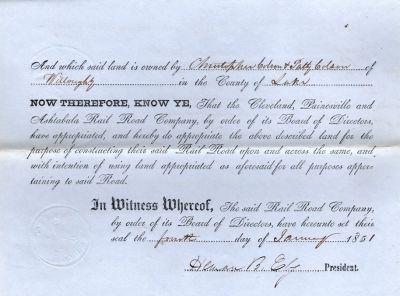 And which said land is owned by Christopher Colson & Patty Colson of
Willoughby in the County of Lake
NOW THEREFORE, KNOW YE, That the Cleveland, Painesville and
Ashtabula Rail Road Company, by order of its Board of Directors,
have appropiated, and hereby do appropiate the above described land for the
purpose of constructing their said Rail Road upon and across the same, and
with intention of using land appropiated as aforesaid for all purposes apper-
taining to said Road.
In Witness Whereof, The said Rail Road Company,
by order of its Board of Directors, have hereunto set their
seal the fourth day of January 1851
B. Ely President.